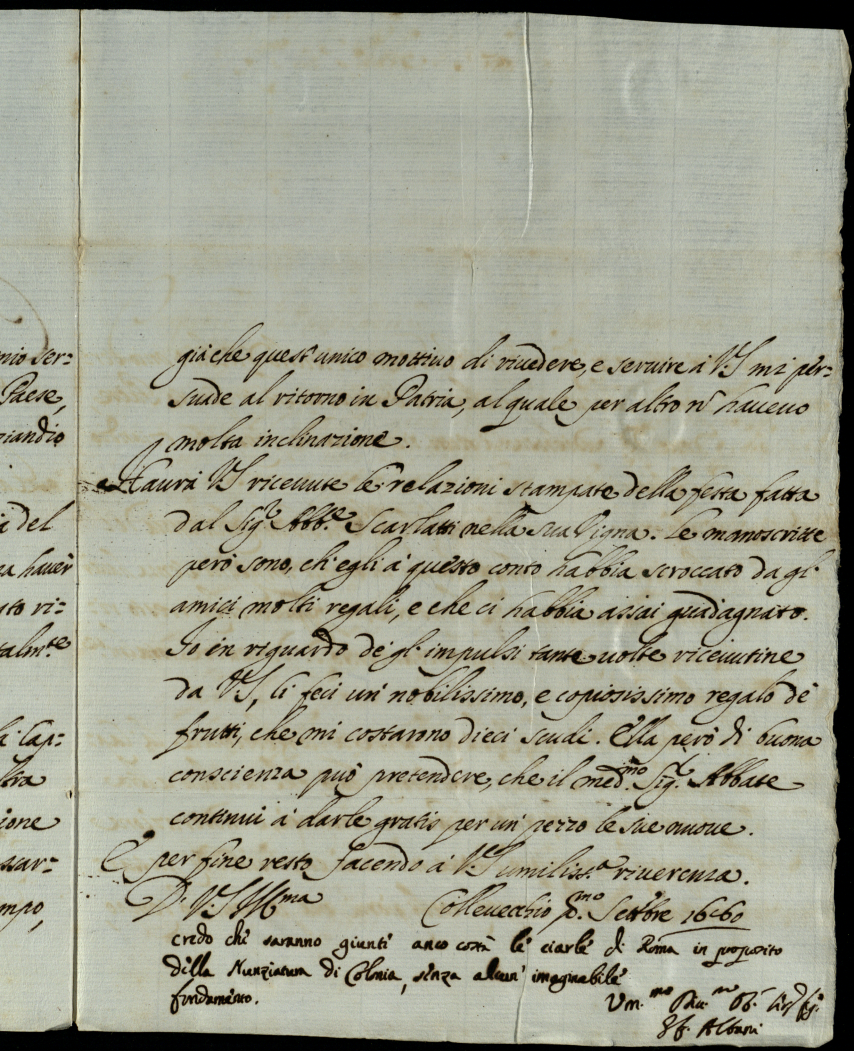 nio ser=
Paese,
ziandio
a del
ea haver
sto ri=
talm.te
la Cap=
ltra
zione
scar=
mpo,
già che quest'unico mottivo di rivedere, e servire à V.S mi per=
suade al ritorno in Patria, al quale per altro nō havevo
molta inclinazione.
Haurà V.S ricevute le relazioni stampate della festa fatta
dal Sig.r Abb.e Scarlatti nella sua Vigna. Le manoscritte
però sono, ch'egli à questo conto habbia scroccato da gl'
amici molti regali, e che ci habbia assai guadagnato.
Io in riguardo de gl' impulsi tante volte ricevutine
da V.S, li feci un nobilissimo, e copiosissimo regalo de
frutti, che mi costarono dieci scudi. Ella però di buona
conscienza può pretendere, che il med.mo Sig.r Abbate
continui à darle gratis per un pezzo le sue nuove.
E per fine resto facendo à V.S umiliss.a riverenza.
D. V.S Ill.ma Collevecchio p.mo Settbre 1660
credo che saranno giunti anco costà le ciarle di Roma in proposito
della Nunziatura di Colonia, senza alcun' imaginabile
fundamento.
Um.mo Div.mo
Albani